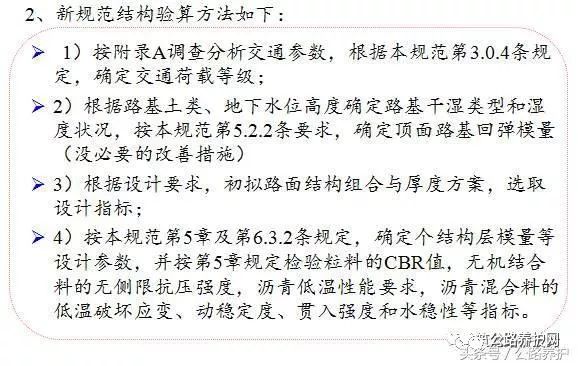 2、新规范结构验算方法如下：
1）按附录A调查分析交通参数，根据本规范第3.0.4条规
定，确定交通荷载等级；
2）根据路基土类、地下水位高度确定路基干湿类型和湿
度状况，按本规范第5.2.2条要求，确定顶面路基回弹模量
（没必要的改善措施）
3）根据设计要求，初拟路面结构组合与厚度方案，选取
设计指标；
4）按本规范第5章及第6.3.2条规定，确定个结构层模量等
设计参数，并按第5章规定检验粒料的CBR值，无机结合
料的无侧限抗压强度，沥青低温性能要求，沥青混合料的
低温破坏应变、动稳定度、贯入强度和水稳性等指标。
公路养护网
头条号/公路养护